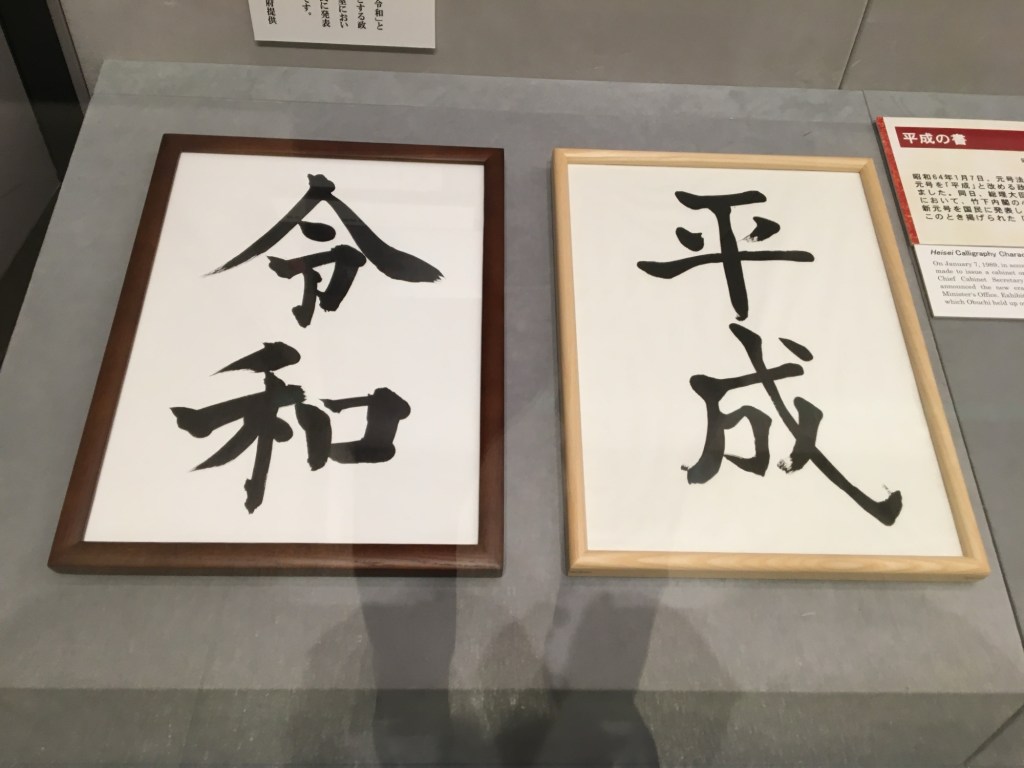 令和」と
とする政
室におい
に発表
です。
府提供
令和
平成
平成の書
昭和64年1月7日、元号法
元号を「平成」と改める政
ました。同日、総理大臣
において、竹下内閣の
新元号を国民に発表し
このとき掲げられた「
Heisei Calligraphy Charac
On January 7, 1989, in
made to issue a cabinet
Chief Cabinet Secretary
announced the new era
Minister's Office. Exhibit
which Obuchi held up